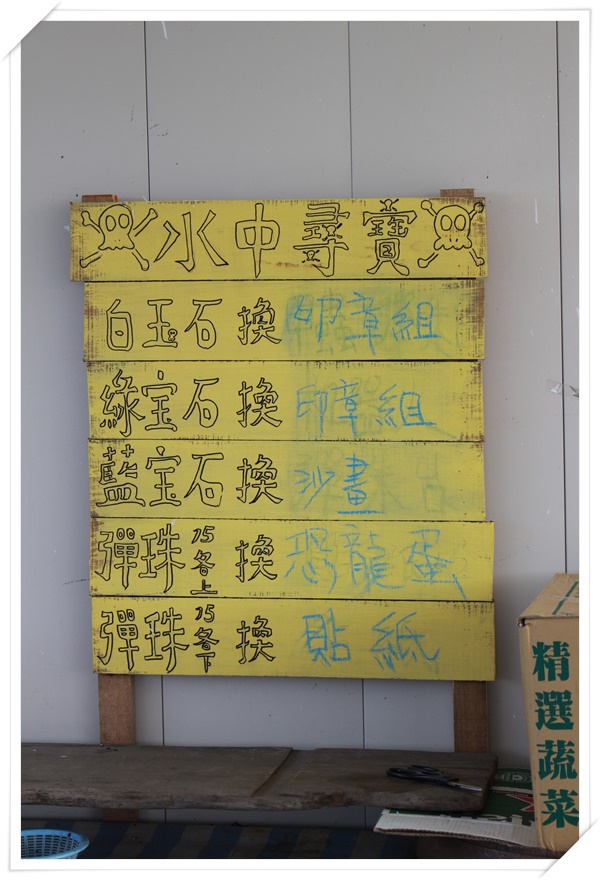 水中尋寶
白玉石換印章組
綠宝石換印章組
藍宝石換沙畫
彈珠15各上換恐龍蛋
彈珠15各下換貼紙
精選蔬菜